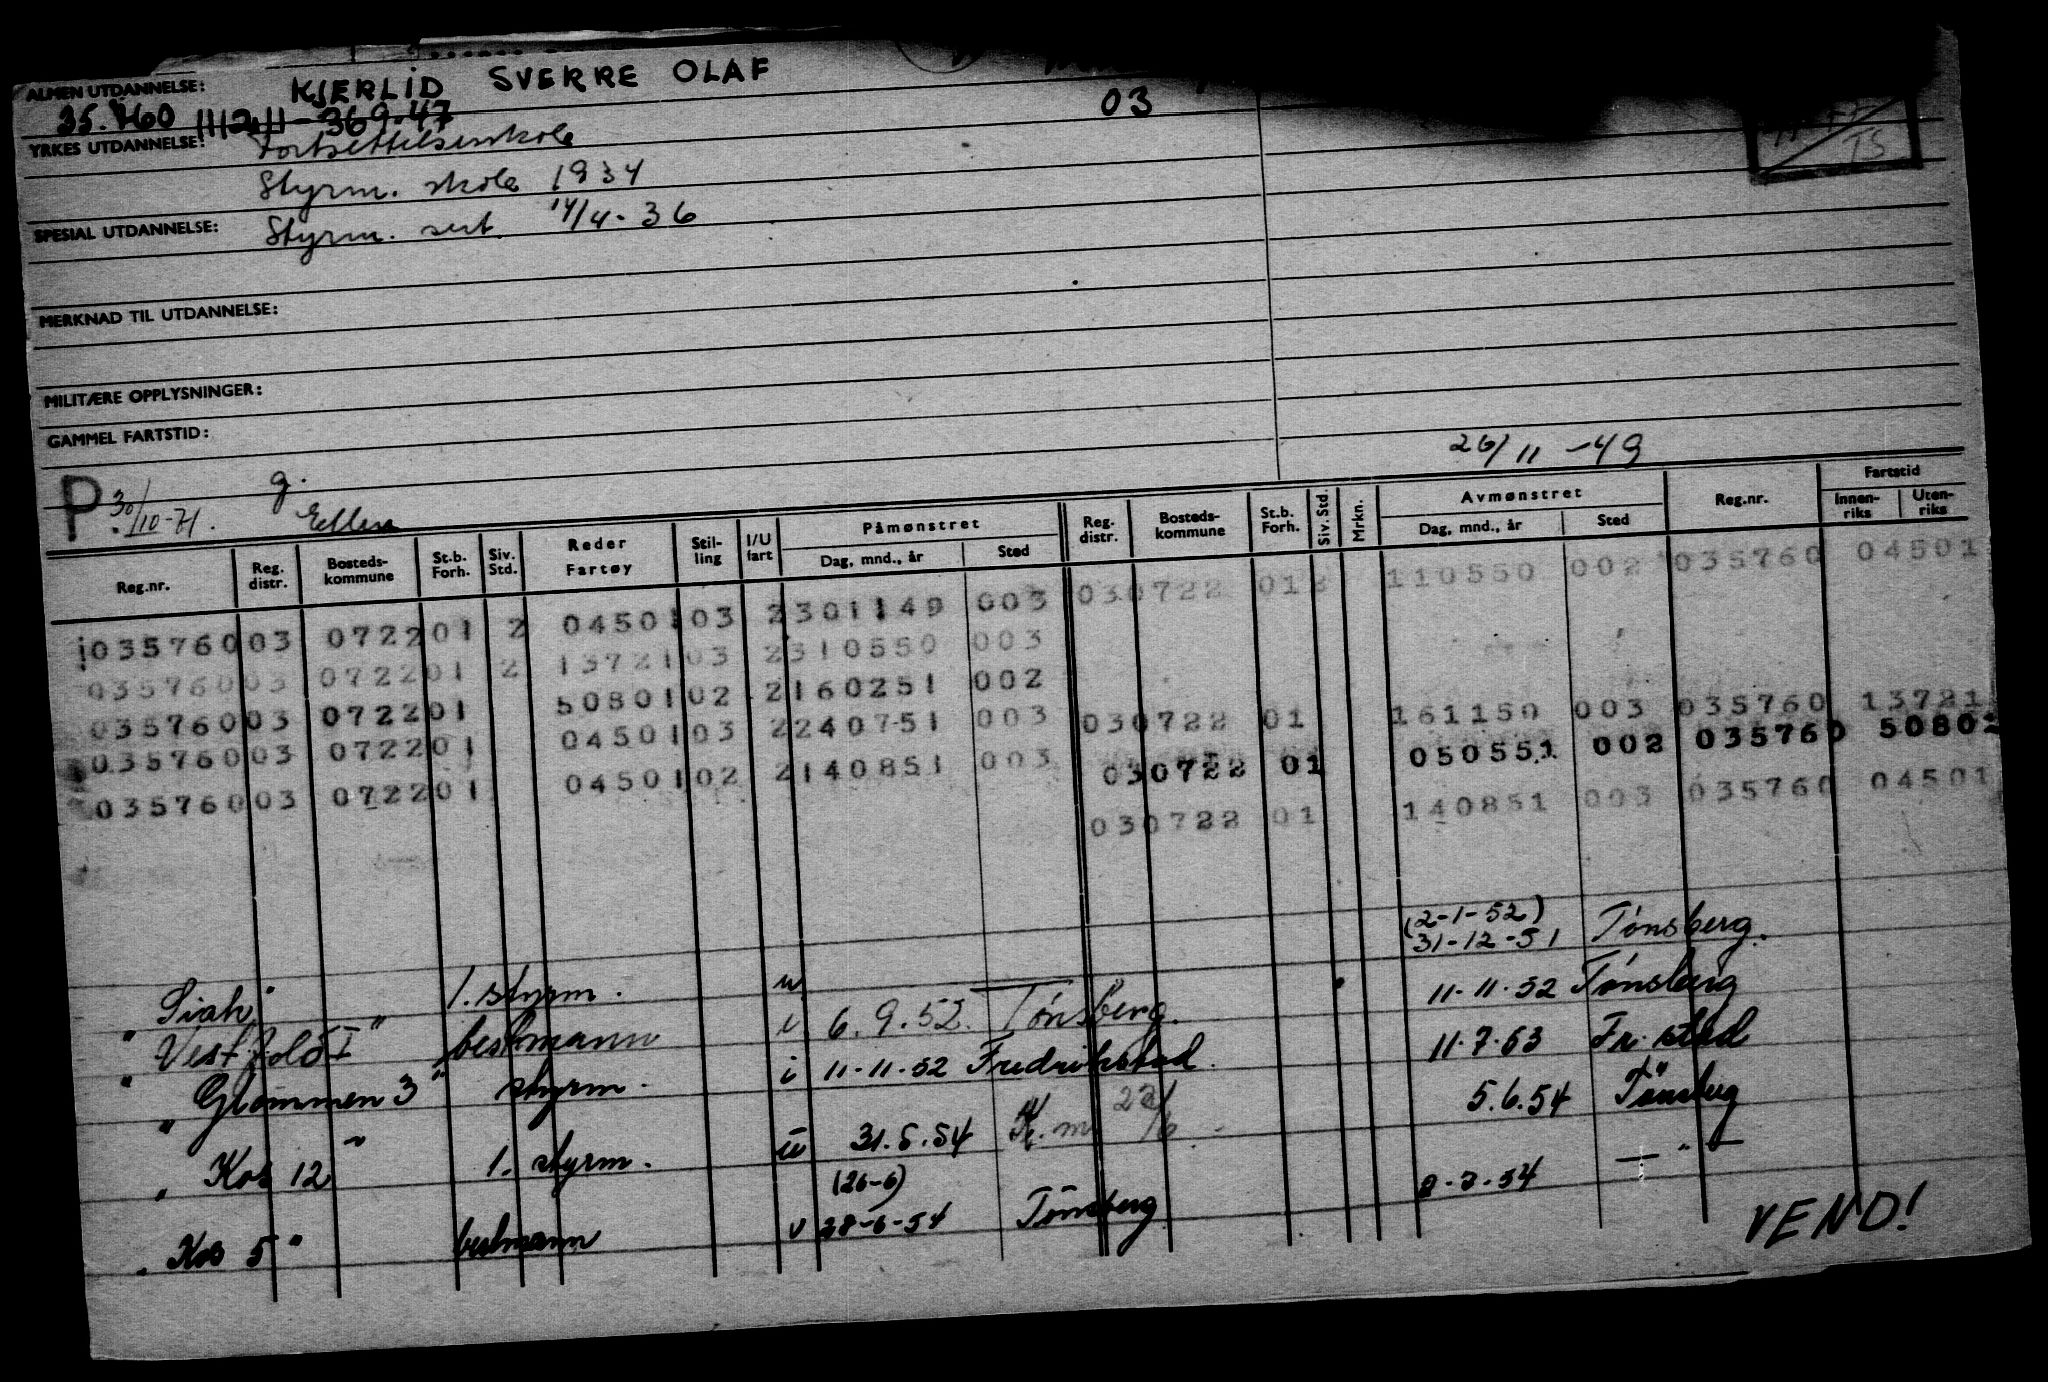 ALMEN UTDANNELSE: KJERLID SVERRE OLAF
35.760 03
YRKES UTDANNELSE: Fortsettelsesskole
Styrm. skole 1934
SPESIAL UTDANNELSE: Styrm. sert. 14/4-36
MERKNAD TIL UTDANNELSE:
MILITÆRE OPPLYSNINGER:
GAMMEL FARTSTID:
26/11-49
P. 30/10-71. g. Ellen
Reg.nr. Reg. distr. Bosteds-kommune St.b. Forh. Siv. Std. Reder Fartøy Stil-ling I/U fart Påmønstret Dag, mnd., år Sted Reg. distr. Bosteds-kommune St.b. Forh. Siv. Std. Mrkn. Avmønstret Dag, mnd., år Sted Reg.nr. Fartstid Innen-riks Uten-riks
035760 03 0722 01 2 04501 03 2 301149 003 03 0722 01 110550 002 035760 04501
035760 03 0722 01 2 13721 03 2 310550 003
035760 03 0722 01 50801 02 2 160251 002 03 0722 01 161150 003 035760 13721
035760 03 0722 01 04501 03 2 240751 003 03 0722 01 050551 002 035760 50801
035760 03 0722 01 04501 02 2 140851 003 03 0722 01 140851 003 035760 04501
(2-1-52)
31-12-51 Tønsberg.
"Sirah" 1. styrm. u
"Vestfold I" bestmann i 6.9.52. Tønsberg. 11-11-52 Tønsberg
"Glommen 3" styrm. i 11-11-52 Fredrikstad. 11-7-53 Fr.stad
"Kos 12" 1. styrm. u 31.5.54 5.6.54 Tønsberg
(26-6)
"Kos 5" bestmann u 28-6-54 Tønsberg — " —
VEND!